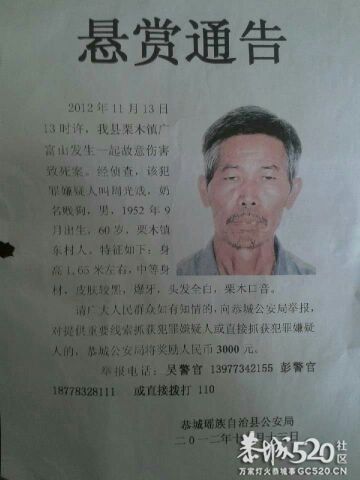 悬赏通告
2012年11月13日
13时许，我县栗木镇广
富山发生一起故意伤害
致死案。经侦查，该犯
罪嫌疑人叫周光诚，奶
名贱狗，男，1952年9
月出生，60岁，栗木镇
东村人。特征如下：身
高1.65米左右，中等身
材，皮肤较黑，爆牙，头发全白，栗木口音。
请广大人民群众如有知情的，向恭城公安局举报，
对提供重要线索抓获犯罪嫌疑人或直接抓获犯罪嫌疑
人的，恭城公安局将奖励人民币3000元。
举报电话：吴警官 13977342155 彭警官
18778328111 或直接拨打110
恭城瑶族自治县公安局
二0一二年十 月 三日
恭城520社区
万家灯火恭城事 GC520.CN